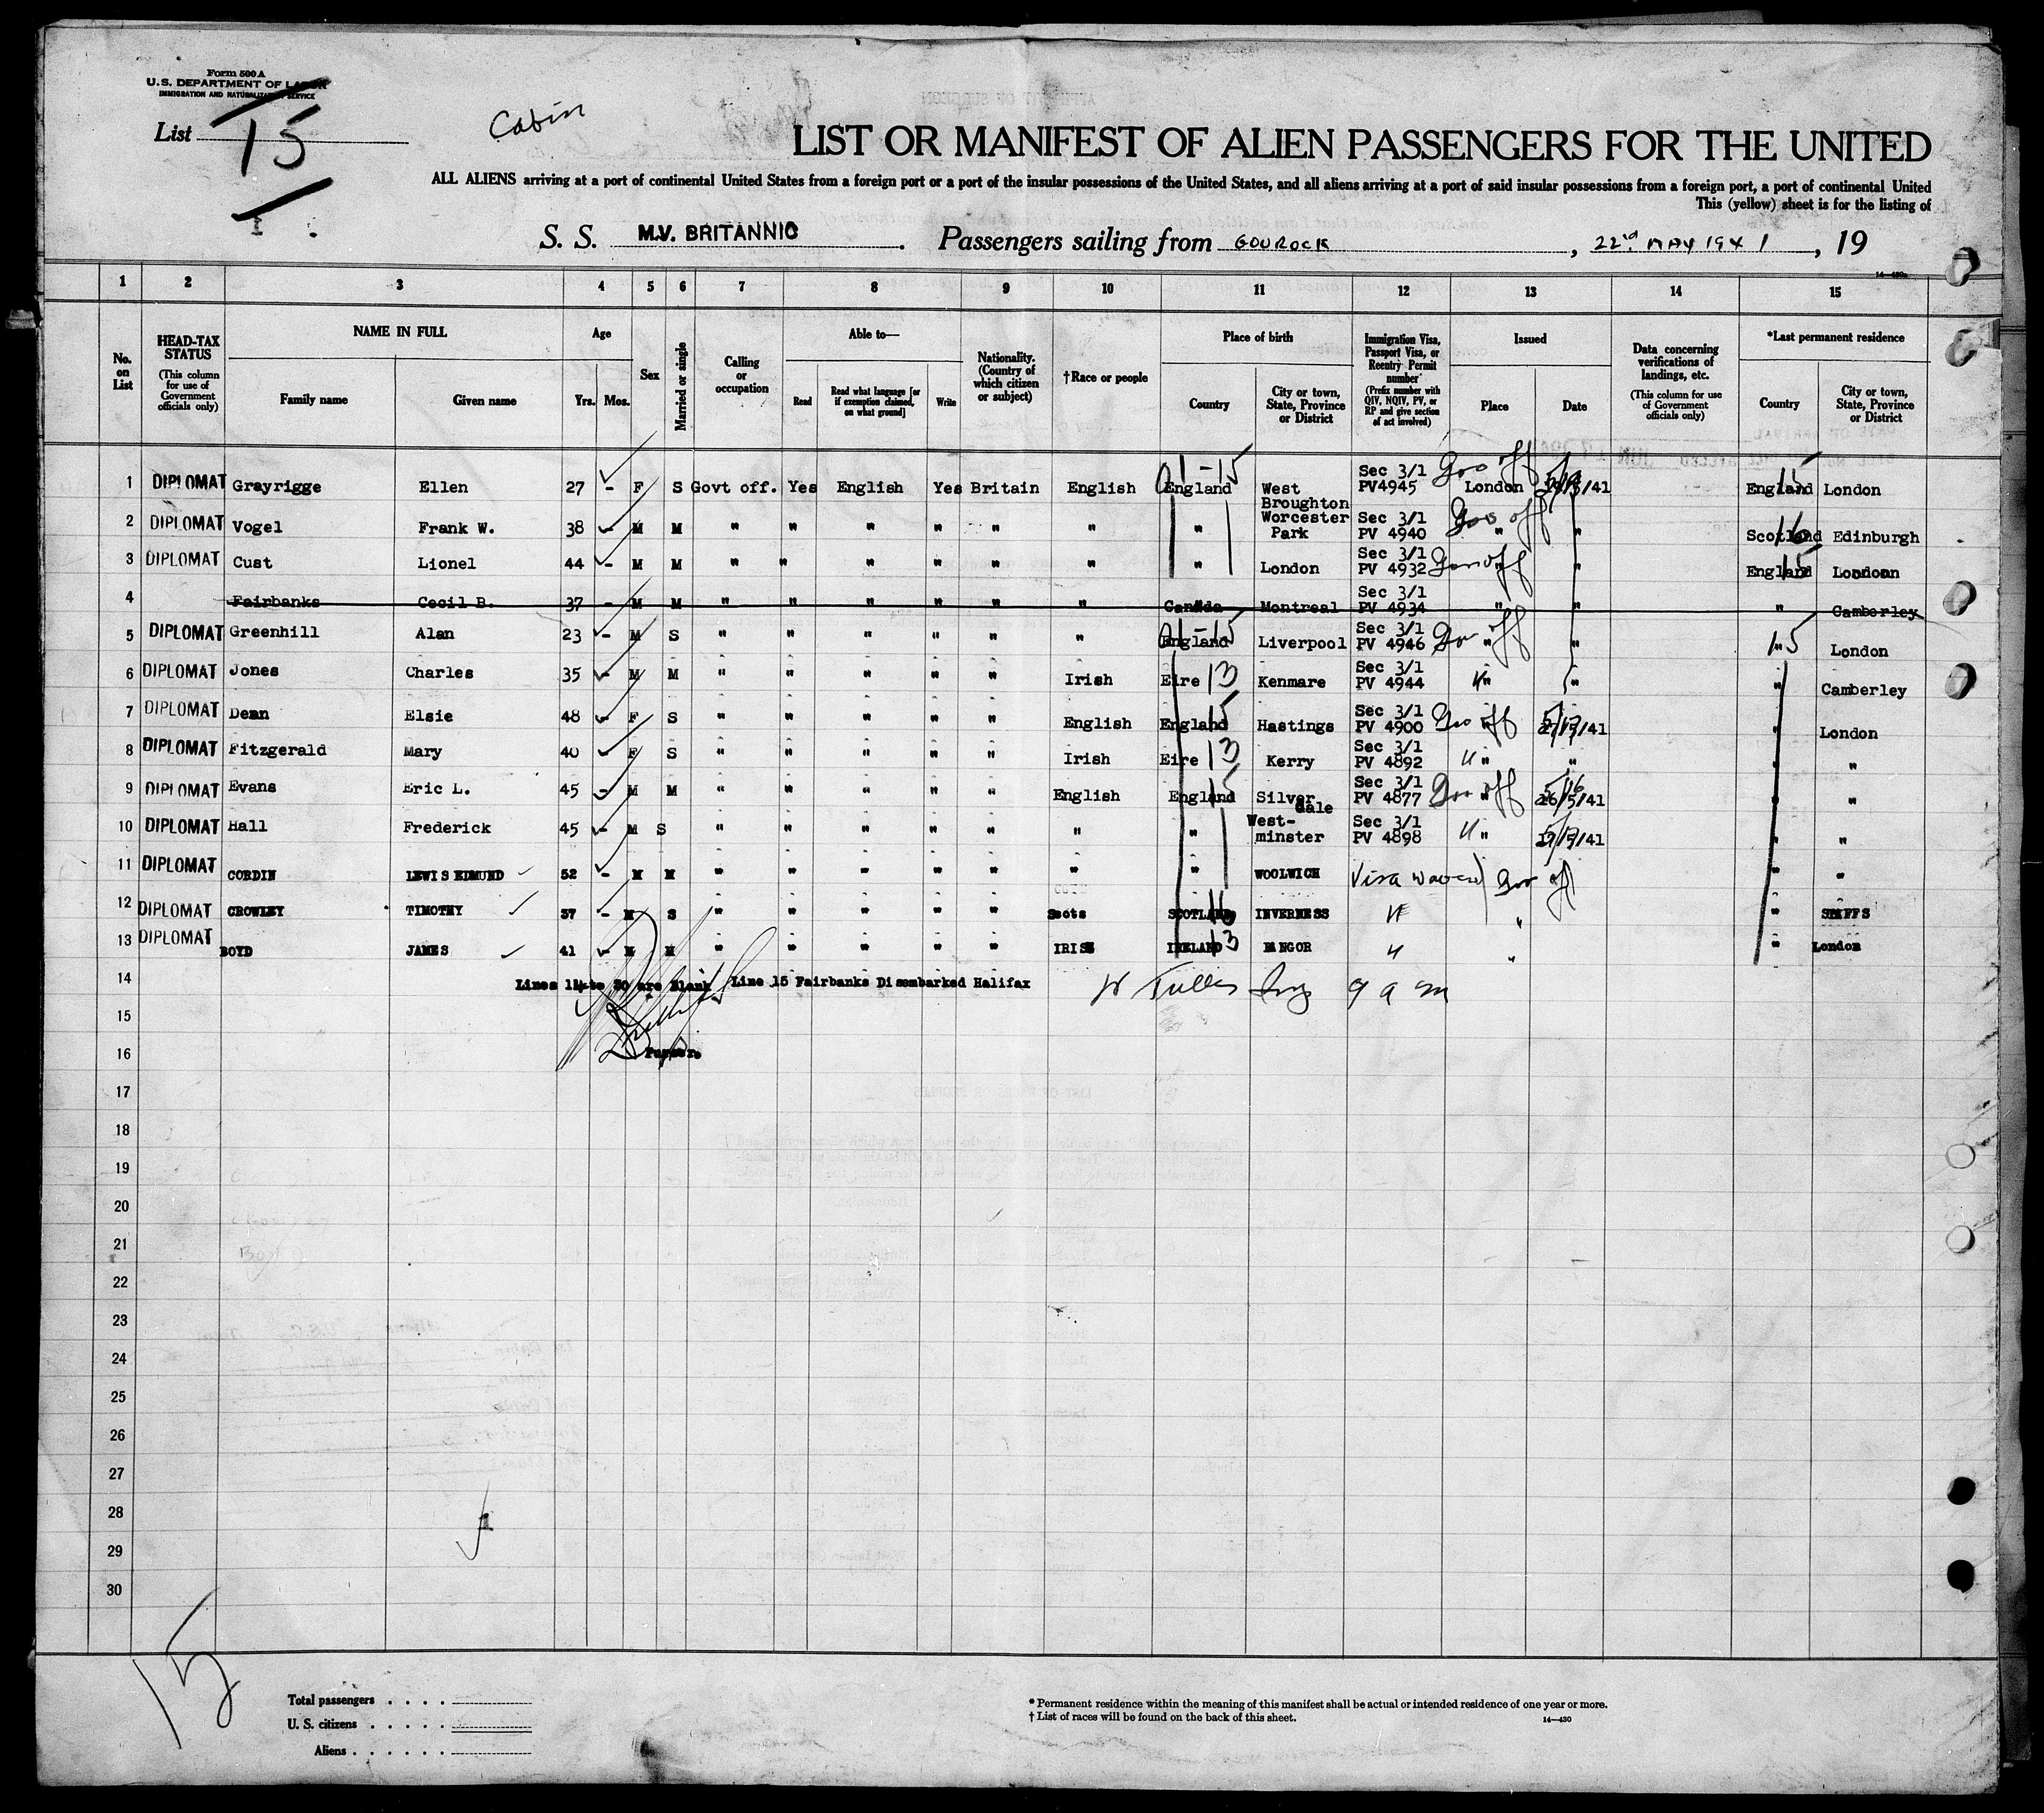 Form 500 A
U.S. DEPARTMENT OF LABOR
IMMIGRATION AND NATURALIZATION SERVICE
List 15
Cabin
LIST OR MANIFEST OF ALIEN PASSENGERS FOR THE UNITED
ALL ALIENS arriving at a port of continental United States from a foreign port or a port of the insular possessions of the United States, and all aliens arriving at a port of said insular possessions from a foreign port, a port of continental United
This (yellow) sheet is for the listing of
1
S. S. M.V. BRITANNIC. Passengers sailing from GOUROCK, 22nd MAY 1941, 19
14—430a
1 2 3 4 5 6 7 8 9 10 11 12 13 14 15
No. on List
HEAD-TAX STATUS (This column for use of Government officials only)
NAME IN FULL Family name Given name
Age Yrs. Mos.
Sex
Married or single
Calling or occupation
Able to— Read Read what language [or if exemption claimed, on what ground] Write
Nationality. (Country of which citizen or subject)
†Race or people
Place of birth Country City or town, State, Province or District
Immigration Visa, Passport Visa, or Reentry Permit number (Prefix number with QIV, NQIV, PV, or RP and give section of act involved)
Issued Place Date
Data concerning verifications of landings, etc. (This column for use of Government officials only)
*Last permanent residence Country City or town, State, Province or District
1 DIPLOMAT Grayrigge Ellen 27 - F S Govt off. Yes English Yes Britain English England 01-15 West Broughton Sec 3/1 PV4945 Gov off London /5/41 England 15 London
2 DIPLOMAT Vogel Frank W. 38 - M M " " " " " " " Worcester Park Sec 3/1 PV 4940 Gov off " " Scotland 16 Edinburgh
3 DIPLOMAT Cust Lionel 44 - M M " " " " " " " London Sec 3/1 PV 4932 Gov off " " England 15 London
4 Fairbanks Cecil B. 37 - M M " " " " " " Canada Montreal Sec 3/1 PV 4934 " " " Camberley
5 DIPLOMAT Greenhill Alan 23 - M S " " " " " " England 01-15 Liverpool Sec 3/1 PV 4946 Gov off " " " 15 London
6 DIPLOMAT Jones Charles 35 - M M " " " " " Irish Eire 13 Kenmare Sec 3/1 PV 4944 " " " Camberley
7 DIPLOMAT Dean Elsie 48 - F S " " " " " English England 15 Hastings Sec 3/1 PV 4900 Gov off " /5/41 " London
8 DIPLOMAT Fitzgerald Mary 40 - F S " " " " " Irish Eire 13 Kerry Sec 3/1 PV 4892 " " " "
9 DIPLOMAT Evans Eric L. 45 - M M " " " " " English England 15 Silverdale Sec 3/1 PV 4877 Gov off " 5/16 /5/41 " "
10 DIPLOMAT Hall Frederick 45 - M S " " " " " " " West-minster Sec 3/1 PV 4898 " " /5/41 " "
11 DIPLOMAT CORDIN LEWIS EDMUND 52 - M M " " " " " " " WOOLWICH Visa Waived Gov off " "
12 DIPLOMAT CROWLEY TIMOTHY 37 - M S " " " " " Scots SCOTLAND 16 INVERNESS " " " STAFFS
13 DIPLOMAT BOYD JAMES 41 - M M " " " " " IRISH IRELAND 13 BANGOR " " " London
14 Lines 14 to 30 are Blank Line 15 Fairbanks Disembarked Halifax
15
16 Purser.
17
18
19
20
21
22
23
24
25
26
27
28
29
30
15
Total passengers
U. S. citizens
Aliens
* Permanent residence within the meaning of this manifest shall be actual or intended residence of one year or more.
† List of races will be found on the back of this sheet.
14—430